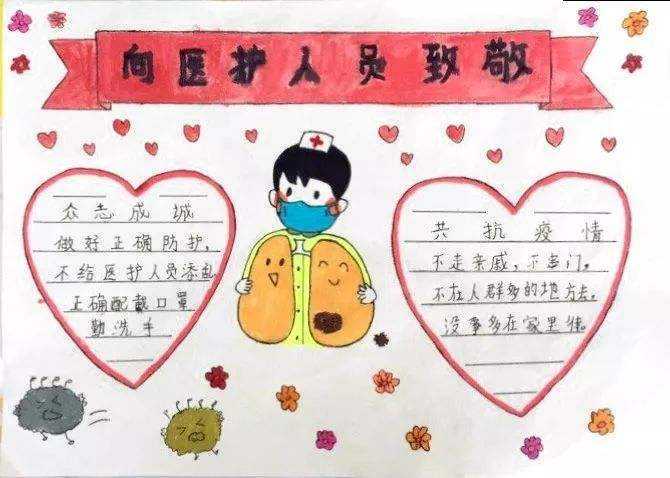 向医护人员致敬
众志成城
做好正确防护,
不给医护人员添乱
正确配戴口罩
勤洗手
共抗疫情
不走亲戚,不串门。
不在人群多的地方去。
没事多在家里待。